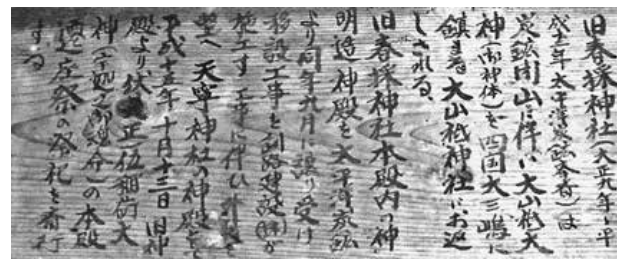 旧春採神社(大正九年〜平
成十三年太平洋炭鉱奉斎)は
炭鉱閉山に伴い大山祇大
神(御神体)を四国大三嶋に
鎮まる大山祇神社にお返
しされる。
旧春採神社本殿内の神
明造神殿を太平洋炭鉱
より同年九月に譲り受け
移設工事を釧路建設(株)が
施工す 工事に伴ひ
へ 天寧神社の神殿を
平成十五年十月十三日 旧神
殿より伏 正一位稲荷大
神(御分)の本殿
遷座祭の祭礼を斎行
する